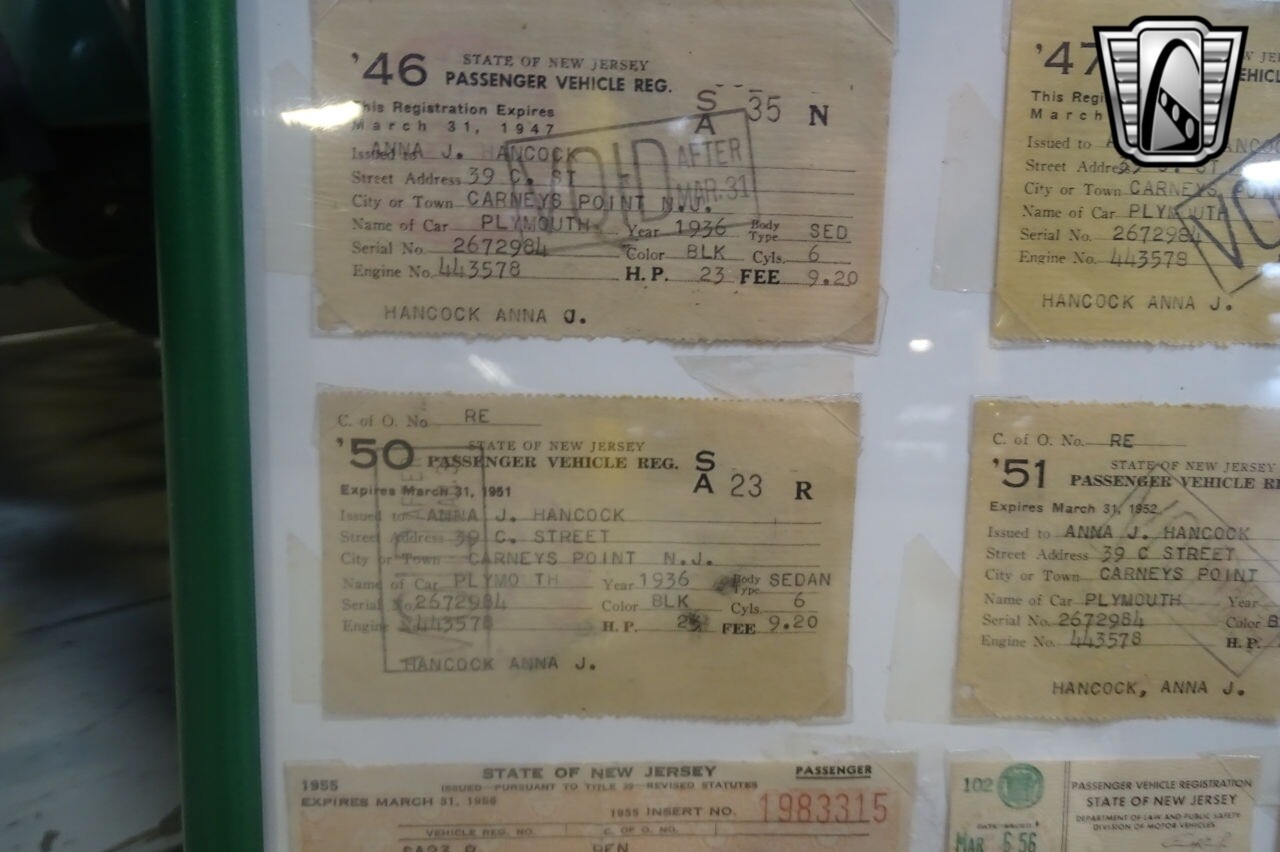 '46 STATE OF NEW JERSEY
PASSENGER VEHICLE REG.
This Registration Expires
March 31, 1947
SA 35 N
VOID AFTER MAR. 31
Issued to ANNA J. HANCOCK
Street Address 39 C. ST
City or Town CARNEYS POINT N.J.
Name of Car PLYMOUTH Year 1936 Body Type SED
Serial No. 2672984 Color BLK Cyls. 6
Engine No. 443578 H.P. 23 FEE 9.20
HANCOCK ANNA J.
'47
This Regi
March
Issued to
Street Address
City or Town CARNEYS
Name of Car PLYMOUTH
Serial No. 2672984
Engine No. 443578
HANCOCK ANNA J.
C. of O. No. RE
'50 STATE OF NEW JERSEY
PASSENGER VEHICLE REG.
SA 23 R
Expires March 31, 1951
Issued to ANNA J. HANCOCK
Street Address 39 C. STREET
City or Town CARNEYS POINT N.J.
Name of Car PLYMO TH Year 1936 Body Type SEDAN
Serial No. 2672984 Color BLK Cyls. 6
Engine 443578 H.P. FEE 9.20
HANCOCK ANNA J.
C. of O. No. RE
'51 STATE OF NEW JERSEY
PASSENGER VEHICLE RE
Expires March 31, 1952
Issued to ANNA J. HANCOCK
Street Address 39 C STREET
City or Town CARNEYS POINT
Name of Car PLYMOUTH Year
Serial No. 2672984 Color B
Engine No. 443578 H.P.
HANCOCK, ANNA J.
1955 STATE OF NEW JERSEY PASSENGER
ISSUED PURSUANT TO TITLE 39 REVISED STATUTES
EXPIRES MARCH 31, 1956
1955 INSERT NO. 1983315
VEHICLE REG. NO. C. OF O. NO.
102
PASSENGER VEHICLE REGISTRATION
STATE OF NEW JERSEY
DEPARTMENT OF LAW AND PUBLIC SAFETY
DIVISION OF MOTOR VEHICLES
MAR 6 56